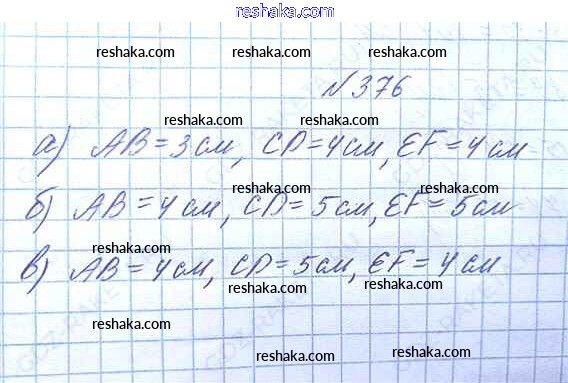 reshaka.com
reshaka.com reshaka.com
№376
reshaka.com
reshaka.com reshaka.com
а) AB = 3 см, CD = 4 см, EF = 4 см
reshaka.com reshaka.com
б) AB = 4 см, CD = 5 см, EF = 5 см
reshaka.com
в) AB = 4 см, CD = 5 см, EF = 4 см
reshaka.com reshaka.com
reshaka.com
reshaka.com reshaka.com